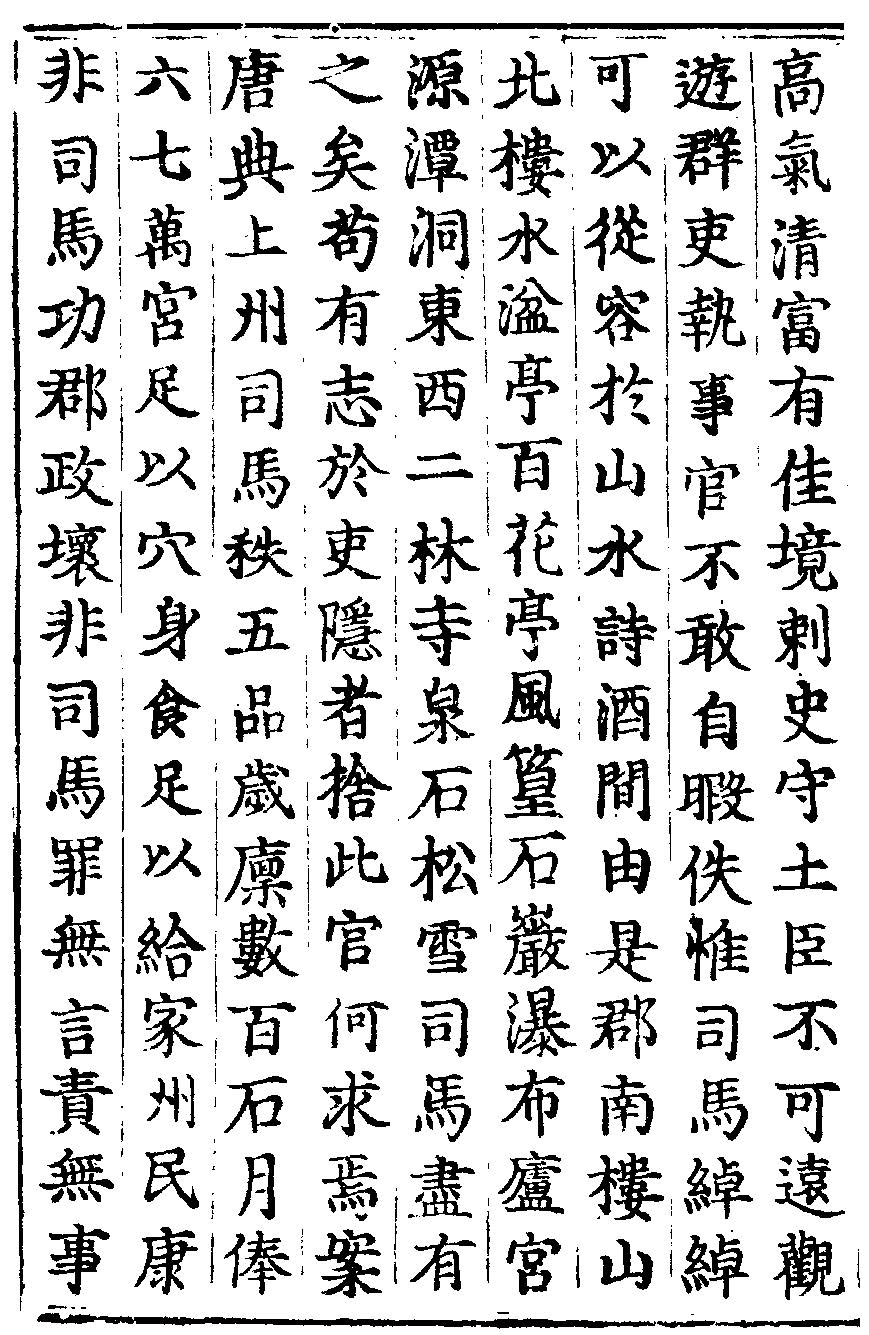 高氣清富有佳境刺史守土臣不可遠觀
遊群吏執事官不敢自暇佚惟司馬綽綽
可以從容扵山水詩酒間由是郡南樓山
北樓水湓亭百花亭風篁石巖瀑布廬宮
源潭洞東西二林寺泉石松雪司馬盡有
之矣苟有志於吏隱者捨此官何求焉案
唐典上州司馬秩五品歲廪數百石月俸
六七萬宮足以穴身食足以給家州民康
非司馬功郡政壞非司馬罪無言責無事